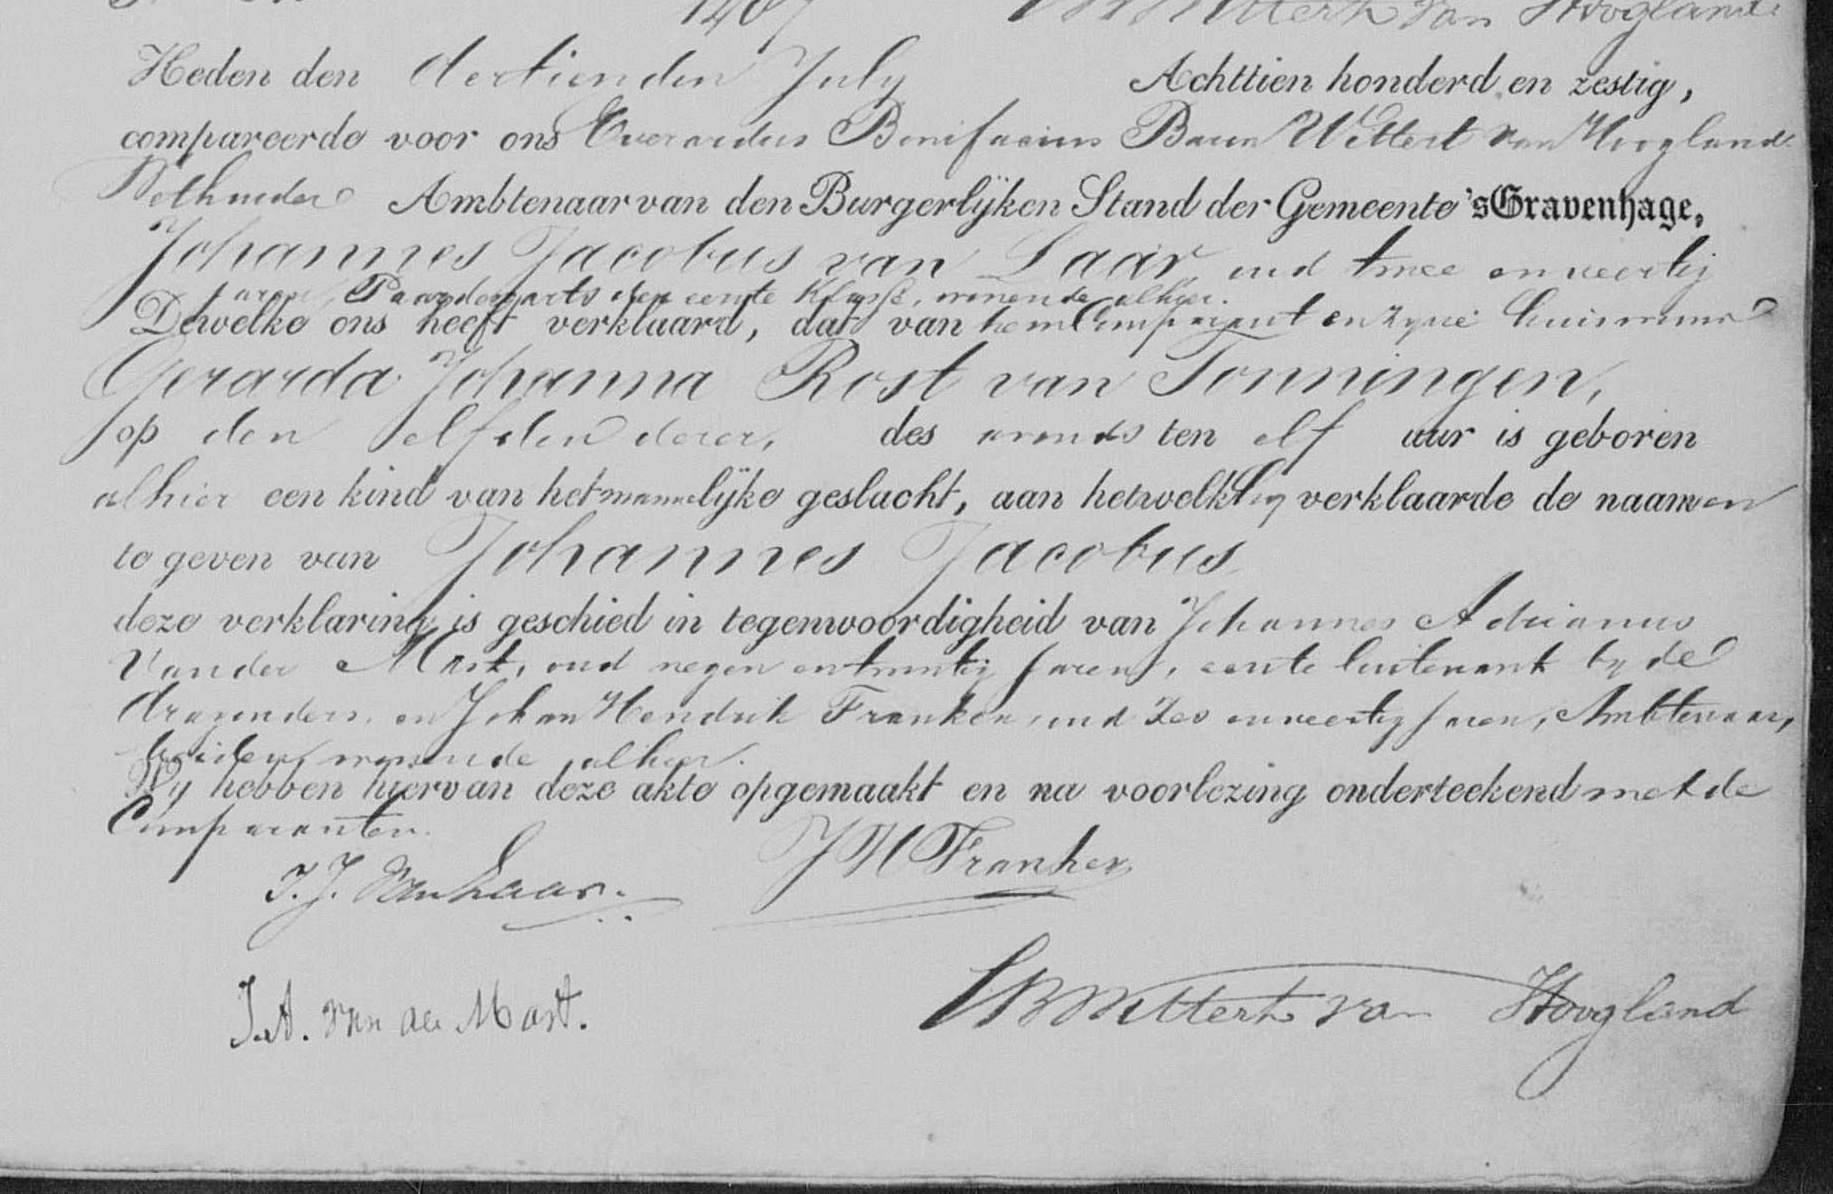 1407 van Hoogland
Heden den dertienden July Achttien honderd en zestig,
compareerde voor ons Everardus Bonifacius Baron Wittert van Hoogland
Wethouder Ambtenaar van den Burgerlijken Stand der Gemeente 's Gravenhage,
Johannes Jacobus van Laar, oud twee en veertig
jaren, Paardenarts der eerste Klasse, wonende alhier.
Dewelke ons heeft verklaard, dat van hem Comparant en zyne huisvrouw
Gerarda Johanna Rost van Tonningen,
op den elfden dezer, des avonds ten elf uur is geboren
alhier een kind van het mannelijke geslacht, aan hetwelk hy verklaarde de naamen
te geven van Johannes Jacobus
deze verklaring is geschied in tegenwoordigheid van Johannes Adrianus
van der Mast, oud negen en twintig jaren, eerste luitenant by de
dragonders, en Johan Hendrik Franken, oud zes en veertig jaren, Ambtenaar,
beiden wonende alhier.
Wy hebben hiervan deze akte opgemaakt en na voorlezing onderteekend met de
Comparanten.
J. J. Van Laar.
J H Franken
J. A. van der Mast.
EB Wittert van Hoogland